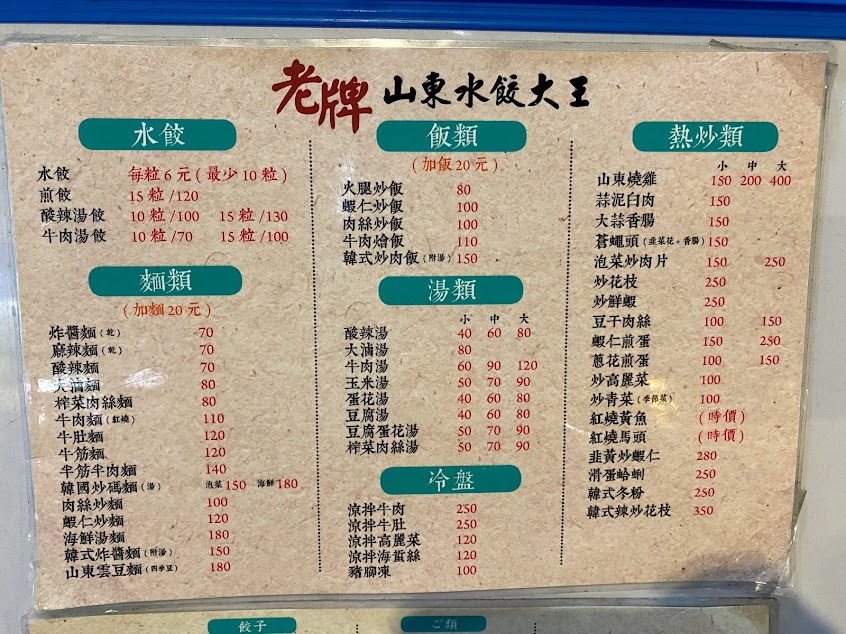 老牌 山東水餃大王
水餃
水餃 每粒6元(最少10粒)
煎餃 15粒/120
酸辣湯餃 10粒/100 15粒/130
牛肉湯餃 10粒/70 15粒/100
麵類
(加麵20元)
炸醬麵(乾) 70
麻辣麵(乾) 70
酸辣麵 70
大滷麵 80
榨菜肉絲麵 80
牛肉麵(紅燒) 110
牛肚麵 120
牛筋麵 120
半筋半肉麵 140
韓國炒碼麵(湯) 泡菜150 海鮮180
肉絲炒麵 100
蝦仁炒麵 120
海鮮湯麵 180
韓式炸醬麵(附湯) 150
山東雲豆麵(四季豆) 180
飯類
(加飯20元)
火腿炒飯 80
蝦仁炒飯 100
肉絲炒飯 100
牛肉燴飯 110
韓式炒肉飯(附湯) 150
湯類
小 中 大
酸辣湯 40 60 80
大滷湯 80
牛肉湯 60 90 120
玉米湯 50 70 90
蛋花湯 40 60 80
豆腐湯 40 60 80
豆腐蛋花湯 50 70 90
榨菜肉絲湯 50 70 90
冷盤
涼拌牛肉 250
涼拌牛肚 250
涼拌高麗菜 120
涼拌海蜇絲 120
豬腳凍 100
熱炒類
小 中 大
山東燒雞 150 200 400
蒜泥白肉 150
大蒜香腸 150
蒼蠅頭(韭菜花。香腸) 150
泡菜炒肉片 150 250
炒花枝 250
炒鮮蝦 250
豆干肉絲 100 150
蝦仁煎蛋 150 250
蔥花煎蛋 100 150
炒高麗菜 100
炒青菜(季節菜) 100
紅燒黃魚 (時價)
紅燒馬頭 (時價)
韭黃炒蝦仁 280
滑蛋蛤蜊 250
韓式冬粉 250
韓式辣炒花枝 350
餃子
ご類